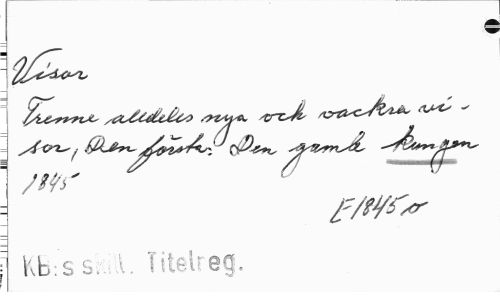 Visor
Trenne alldeles nya och vackra vi-
sor, Den första: Den gamle kungen
1845
E 1845 v
KB:s skill. Titelreg.